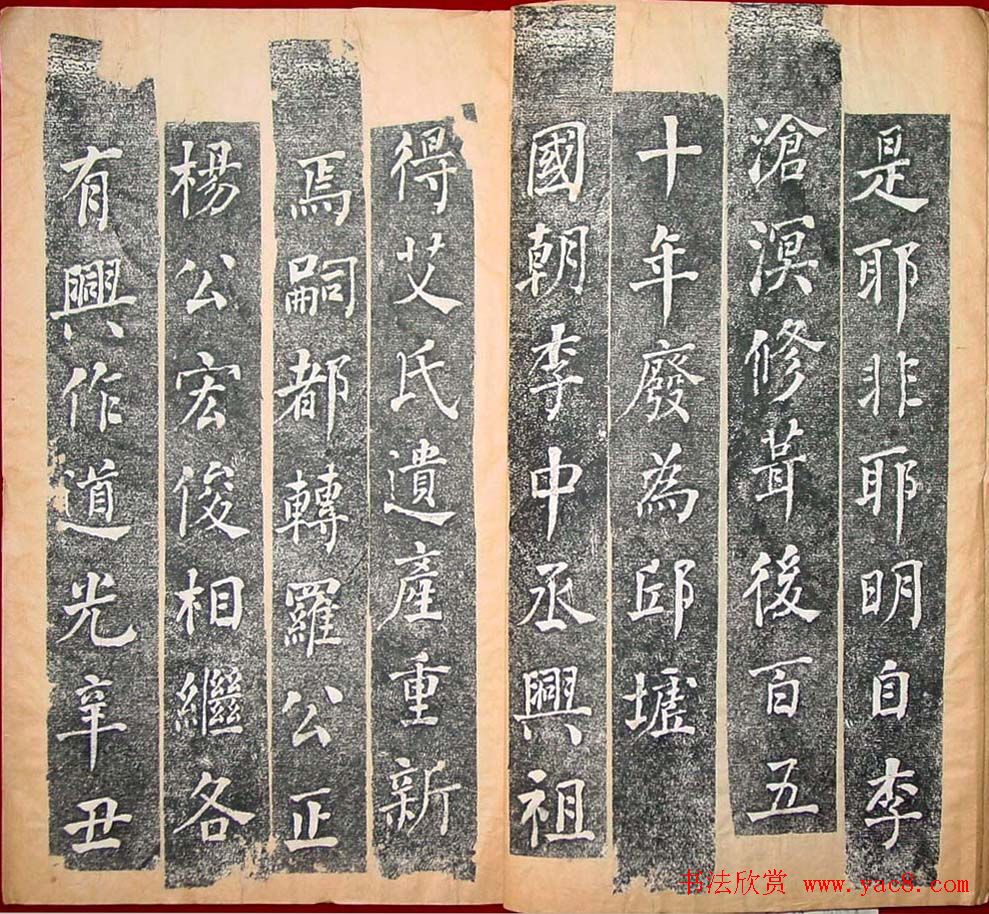 是耶非耶明自李
滄溟修葺後百五
十年廢為邱墟
國朝李中丞興祖
得艾氏遺產重新
焉嗣都轉羅公正
楊公宏俊相繼各
有興作道光辛丑
书法欣赏 www.yac8.com